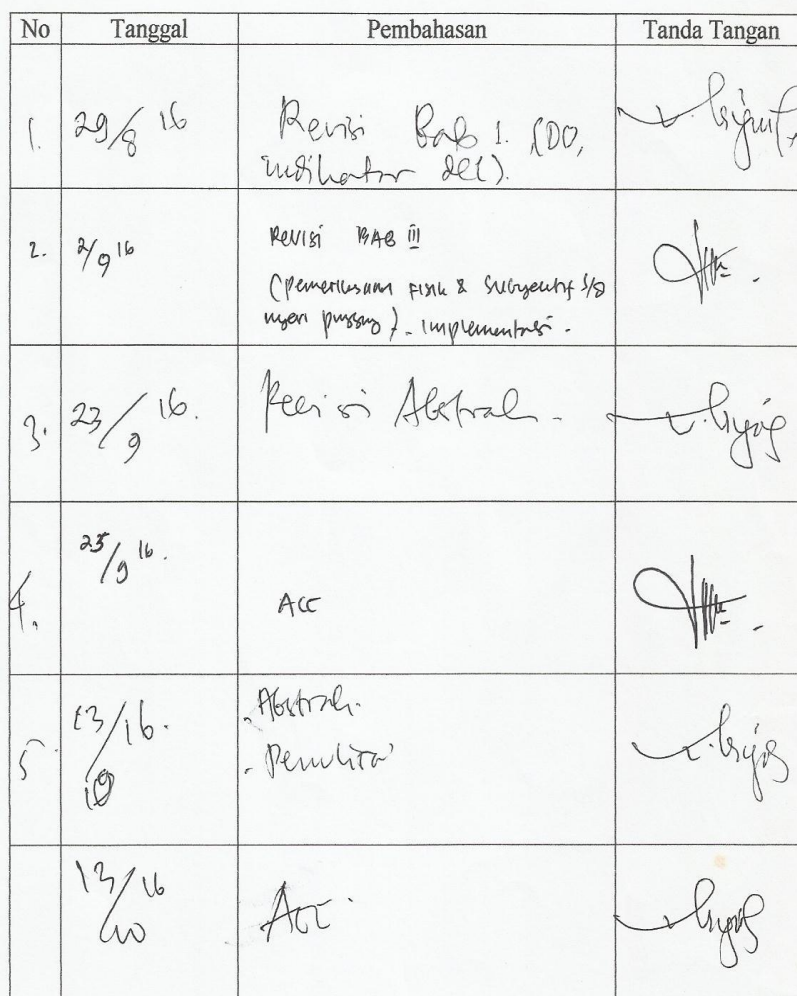 No Tanggal Pembahasan Tanda Tangan
1. 29/8 16 Revisi Bab 1. (DO,
indikator dll).
2. 2/9 16 REVISI BAB III
(Pemeriksaan Fisik & Subyektif S/O
nyeri pusing). implementasi.
3. 23/9 16. Revisi Abstrak.
4. 25/9 16. ACC
5. 13/16. Abstrak.
- Penulisan
13/16 10 ACC.